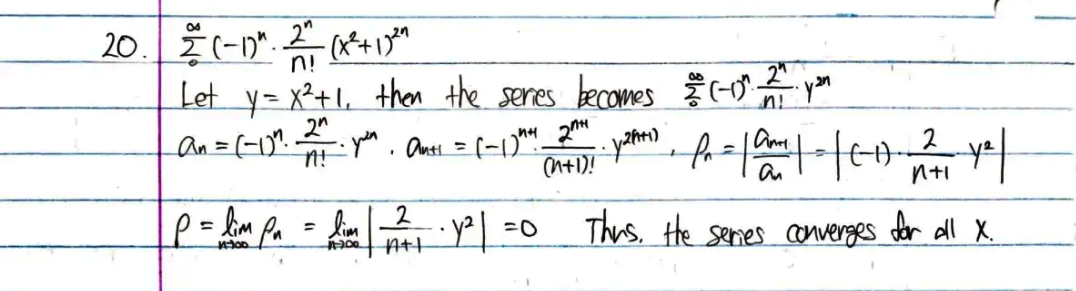 20. ∑_0^∞ (-1)^n · 2^n/n! (x²+1)^{2n}
Let y = x²+1, then the series becomes ∑_0^∞ (-1)^n · 2^n/n! · y^{2n}
a_n = (-1)^n · 2^n/n! · y^{2n} , a_{n+1} = (-1)^{n+1} · 2^{n+1}/(n+1)! · y^{2(n+1)} , ρ_n = |a_{n+1}/a_n| = |(-1) · 2/(n+1) · y²|
ρ = lim_{n→∞} ρ_n = lim_{n→∞} |2/(n+1) · y²| = 0 Thus, the series converges for all x.